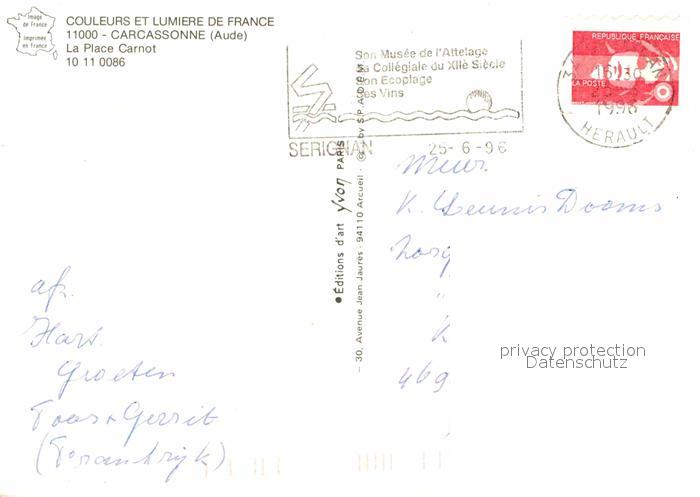 Image
de France
imprimée
en France
COULEURS ET LUMIERE DE FRANCE
11000 - CARCASSONNE (Aude)
La Place Carnot
10 11 0086
Son Musée de l'Attelage
Sa Collégiale du XIIè Siècle
Son Ecoplage
Ses Vins
SERIGNAN 25-6-96
REPUBLIQUE FRANÇAISE
LA POSTE
16H30
1996
HERAULT
●Editions d'art yvon PARIS
— 30, Avenue Jean Jaurès - 94110 Arcueil - © by S.P.A.D.E.M.
K. Dennis Dooms
Zorg
"
K
469
privacy protection
Datenschutz
afz.
Hart.
Groeten
Toos + Gerrit
(Frankrijk)